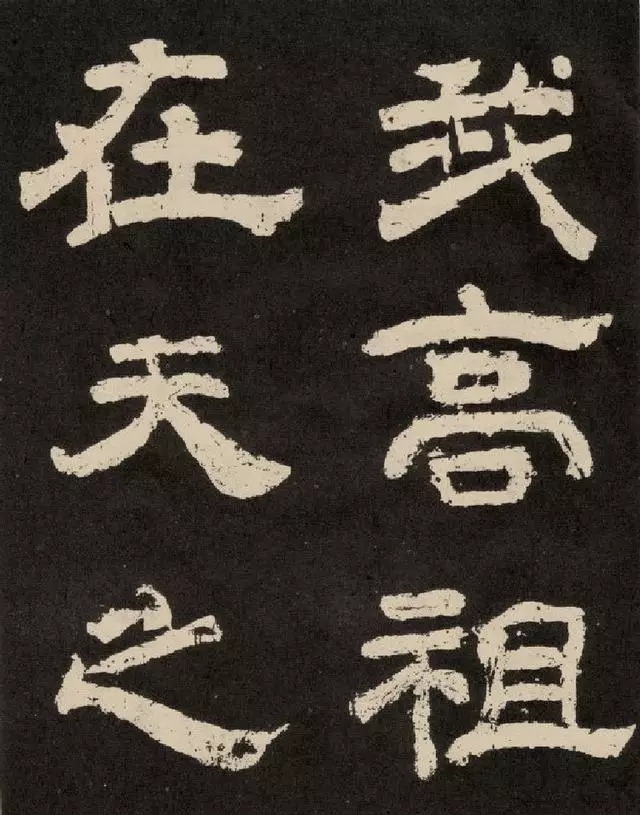 我高祖
在天之